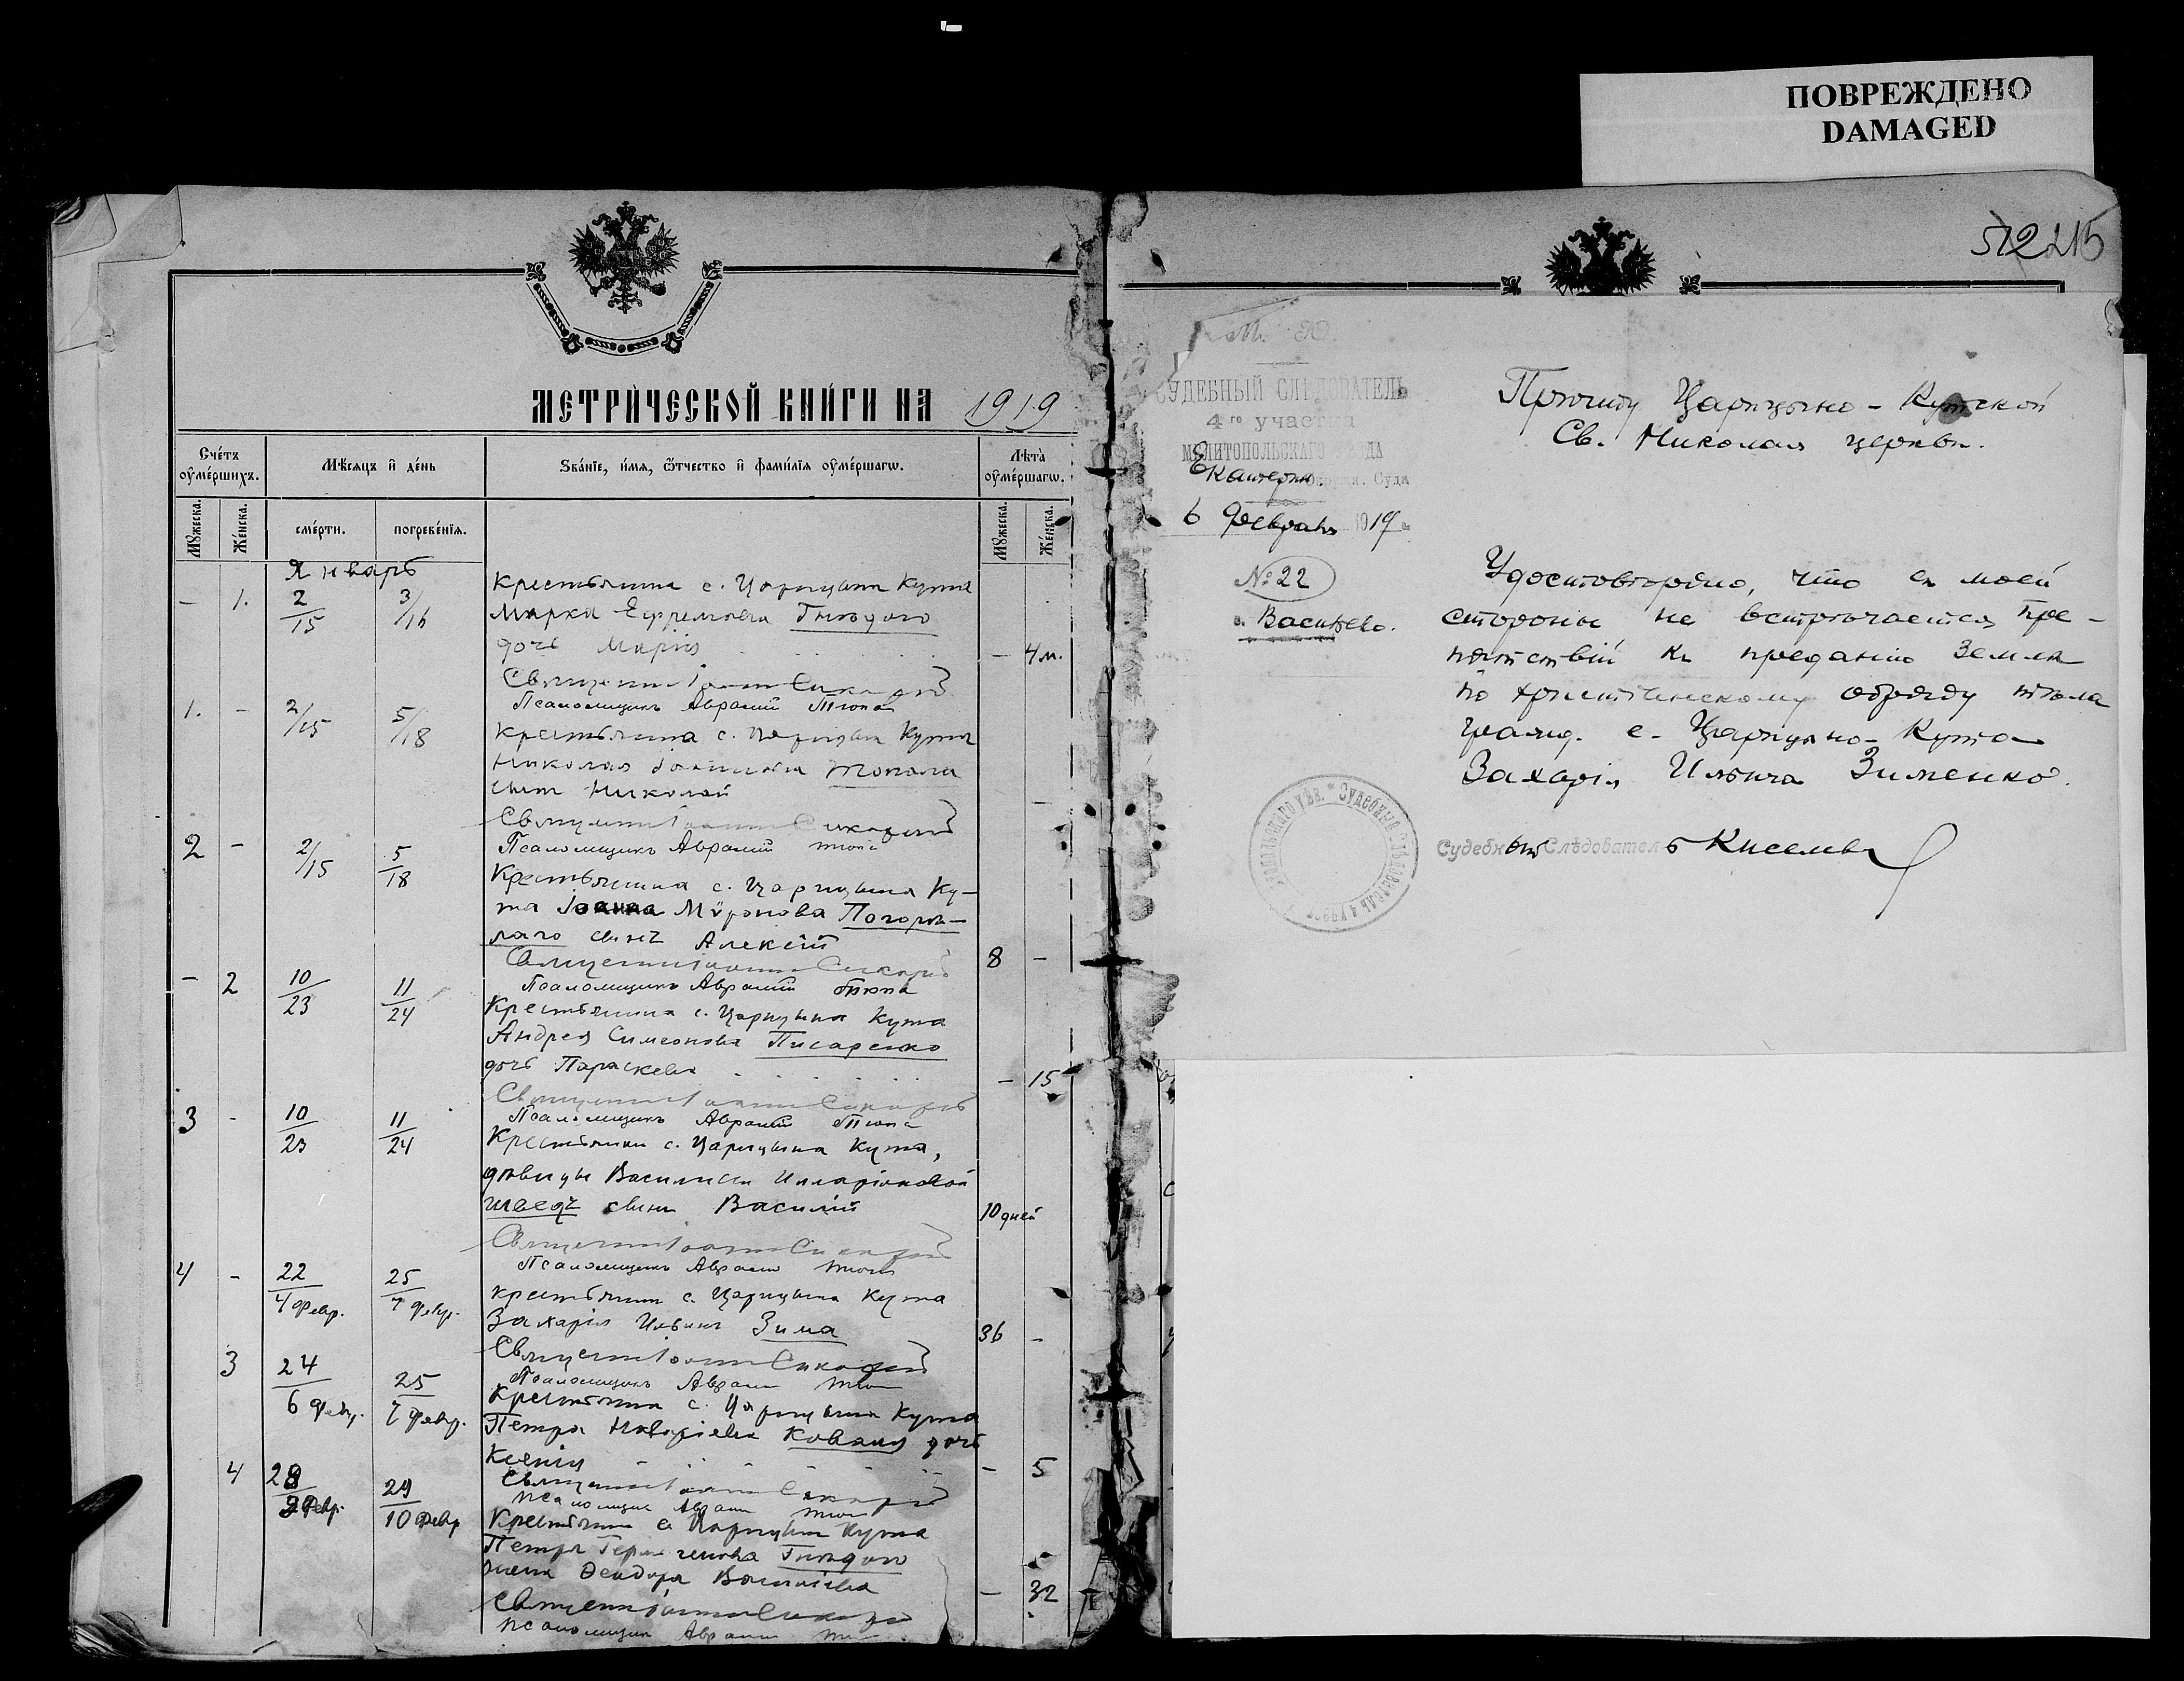 ПОВРЕЖДЕНО
DAMAGED
МЕТРИ́ЧЕСКОЙ КНИ́ГИ НА 1919
Сче́тъ ᲂу҆ме́ршихъ.
Мѣ́сяцъ и҆ де́нь
Ѕва́нїе, и҆́мѧ, ѻ҆́тчество и҆ фами́лїѧ ᲂу҆ме́ршагѡ.
Лѣ́та ᲂу҆ме́ршагѡ.
Мꙋ́жеска.
Же́нска.
сме́рти.
погребе́нїѧ.
Мꙋ́жеска.
Же́нска.
Январь
– 1. 2/15 3/16 Крестьянина с. Царицына Кута
Марка Ефремова Гнѣдого
дочь Марія – 4 м.
Священникъ Іоаннъ
Псаломщикъ Аврамій Тюпа
1. – 2/15 5/18 Крестьянина с. Царицына Кута
Николая Іоаннова
сынъ Николай –
Священникъ Іоаннъ
Псаломщикъ Аврамій Тюпа
2 – 2/15 5/18 Крестьянина с. Царицына Ку-
та Іоанна Мѵронова Погорѣ-
лаго сынъ Алексій 8 –
Священникъ Іоаннъ
Псаломщикъ Аврамій Тюпа
– 2 10/23 11/24 Крестьянина с. Царицына Кута
Андрея Симеонова Писаренко
дочь Параскева – 15
Священникъ Іоаннъ
Псаломщикъ Аврамій Тюпа
3 - 10/23 11/24 Крестьянки с. Царицына Кута,
дѣвицы Василисы Илларіоновой
Шведъ сынъ Василій 10 дней
Священникъ Іоаннъ
Псаломщикъ Аврамій Тюпа
4 – 22/4 Февр. 25/7 Февр. Крестьянинъ с. Царицына Кута
Захарія Ильинъ Зима 36 –
Священникъ Іоаннъ
Псаломщикъ Аврамій Тюпа
3 24/6 Февр. 25/7 Февр. Крестьянина с. Царицына Кута
Петра Коваля дочь
Ксенія – 5
Священникъ Іоаннъ
Псаломщикъ Аврамій Тюпа
4 28/Февр. 29/10 Февр Крестьянина с. Царицына Кута
Петра Гнѣдого
жена Ѳеодора Васильева – 32
Священникъ Іоаннъ
Псаломщикъ Аврамій
215
М. Ю.
СУДЕБНЫЙ СЛѢДОВАТЕЛЬ
4го участка
МЕЛИТОПОЛЬСКАГО УѢЗДА
Екатерин. Окружн. Суда
6 Февраля 1919 г.
№ 22
с. Васильево.
Причту Царицыно-Кутской
Св. Николая церкви.
Удостовѣряю, что съ моей
стороны не встрѣчается пре-
пятствій къ преданію землѣ
по христіанскому обряду тѣла
гражд. с. Царицыно-Кута
Захарія Ильича Зименко.
Судебный Слѣдователь Киселевъ